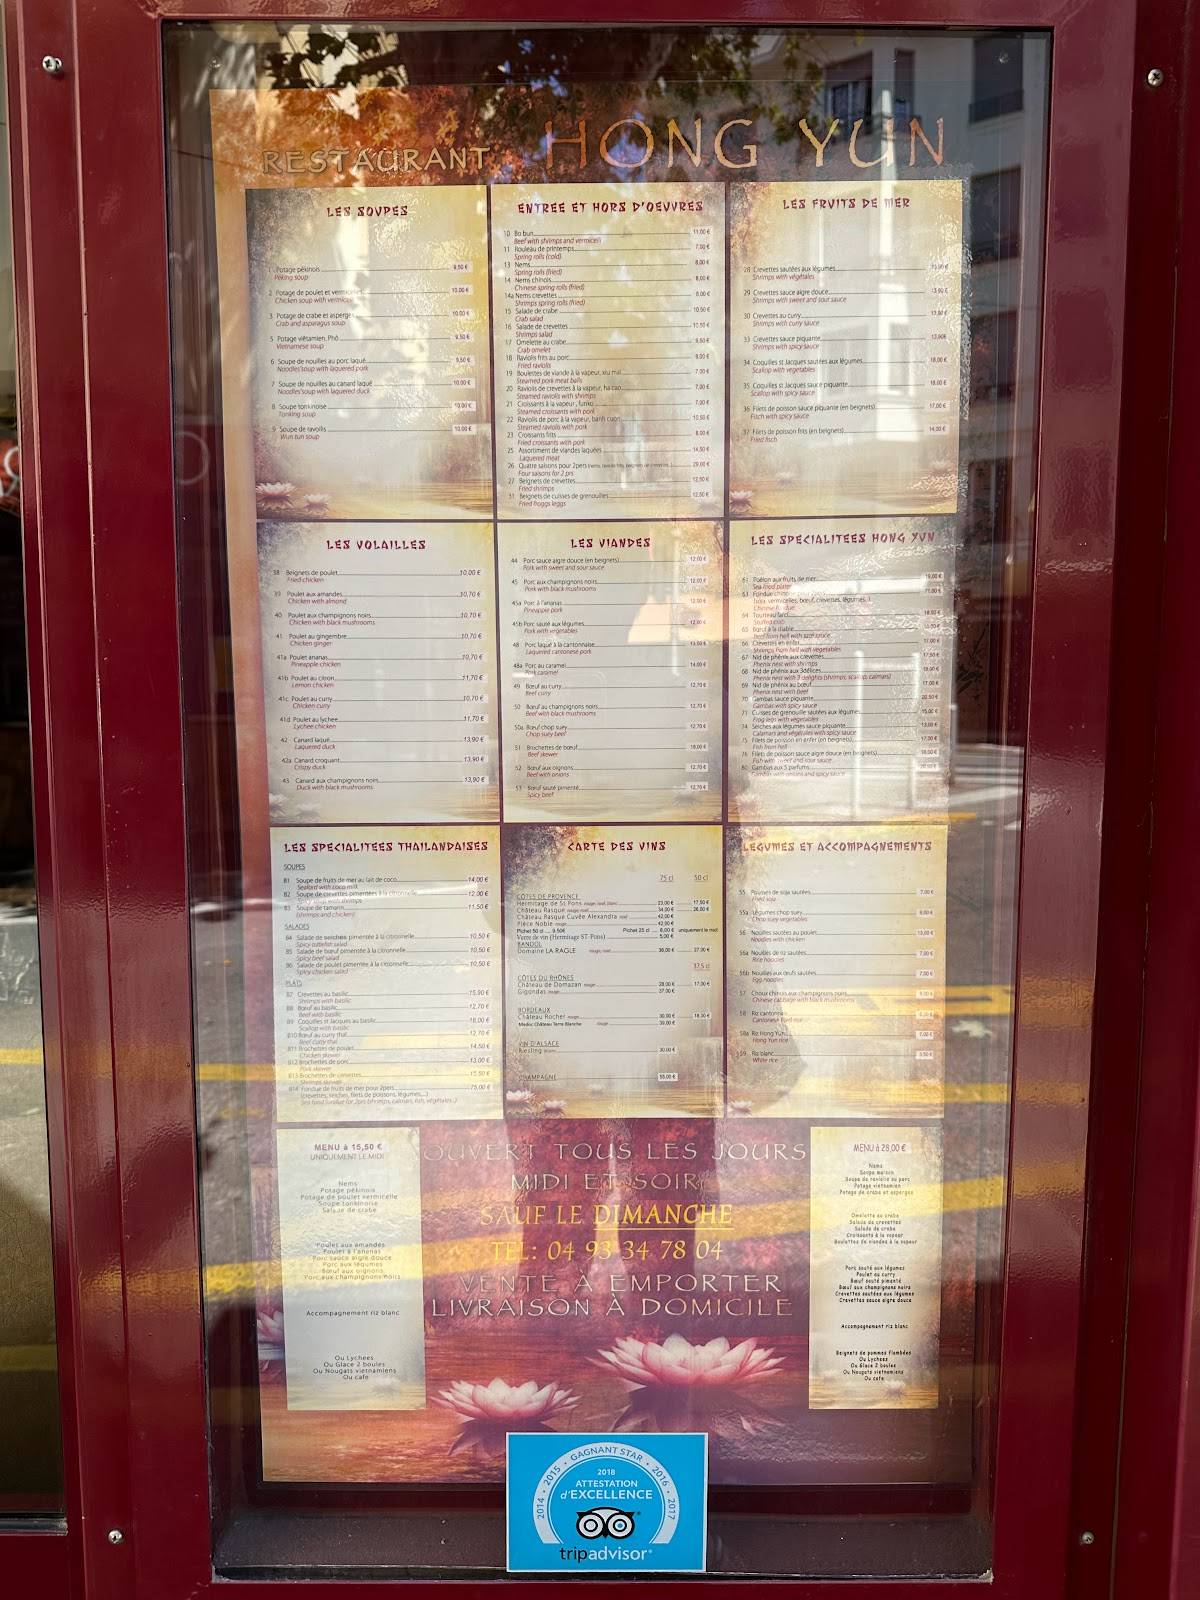 RESTAURANT HONG YUN
LES SOUPES
1 Potage pékinois 9,50 €
Péking soup
2 Potage de poulet et vermicelles 10.00 €
Chicken soup with vermicelli
3 Potage de crabe et asperges 10.00 €
Crab and asparagus soup
5 Potage viêtamien, Phô 9.50€
Vietnamese soup
6 Soupe de nouilles au porc laqué 9,50€
Noodles'soup with laquered pork
7 Soupe de nouilles au canard laqué 10.00 €
Noodles'soup with laquered duck
8 Soupe tonkinoise 10.00 €
Tonking soup
9 Supe de raviolis 10.00 €
Wun tun soup
ENTREE ET HORS D'OEUVRES
10 Bo bun 11.00 €
Beef with shrimps and vermicelli
11 Rouleau de printemps 7.00 €
Spring rolls (cold)
13 Nems 8.00 €
Spring rolls (fried)
14 Nems chinois 8,00 €
Chinese spring rolls (fried)
14a Nems crevettes 8.00 €
Shrimps spring rolls (fried)
15 Salade de crabe 10.50 €
Crab salad
16 Salade de crevettes 10.50 €
Shrimps salad
17 Omelette au crabe 9,50 €
Crab omelet
18 Raviolis frits au porc 8.00 €
Fried raviolis
19 Boulettes de viande à la vapeur, xiu mai 7.00 €
Steamed pork meat balls
20 Raviolis de crevettes à la vapeur, ha cao 7.00 €
Steamed raviolis with shrimps
21 Croissants à la vapeur, funko 7.00 €
Steamed croissants with pork
22 Raviolis de porc à la vapeur, banh cuon 10.50 €
Steamed raviolis with pork
23 Croissants frits 8.00 €
Fried croissants with pork
25 Assortiment de viandes laquées 14,50 €
Laquered meat
26 Quatre saisons pour 2pers 29.00 €
Four saisons for 2 prs
27 Beignets de crevettes 12.50 €
Fried shrimps
31 Beignets de cuisses de grenouilles 12.50 €
Fried froggs leggs
LES FRUITS DE MER
28 Crevettes sautées aux légumes
Shrimps with végétales
29 Crevettes sauce aigre douce
Shrimps with sweet and sour sauce
30 Crevettes au curry
Shrimps with curry sauce
33 Crevettes sauce piquante
Shrimps with spicy sauce
34 Coquilles st Jacques sautées aux légumes 18.00 €
Scallop with vegetables
35 Coquilles st Jacques sauce piquante 18.00 €
Scallop with spicy sauce
36 Filets de poisson sauce piquante (en beignets) 17,00 €
Fisch with spicy sauce
37 Filets de poisson frits (en beignets) 14,00 €
Fried fisch
LES VOLAILLES
38 Beignets de poulet 10,00 €
Fried chicken
39 Poulet aux amandes 10,70 €
Chicken with almond
40 Poulet aux champignons noirs 10,70 €
Chicken with black mushrooms
41 Poulet au gingembre 10,70 €
Chicken ginger
41a Poulet ananas 10,70 €
Pineapple chicken
41b Poulet au citron 11,70 €
Lemon chicken
41c Poulet au curry 10,70 €
Chicken curry
41d Poulet au lychee 11,70 €
Lychee chicken
42 Canard laqué 13,90 €
Laquered duck
42a Canard croquant 13,90 €
Crispy duck
43 Canard aux champignons noirs 13,90 €
Duck with black mushrooms
LES VIANDES
44 Porc sauce aigre douce (en beignets) 12.00 €
Pork with sweet and sour sauce
45 Porc aux champignons noirs 12.00 €
Pork with black mushrooms
45a Porc à l'ananas 12.50 €
Pineapple pork
45b Porc sauté aux légumes 12.00 €
Pork with vegetables
48 Porc laqué à la cantonnaise
Laquered cantonese pork
48a Porc au caramel 14.00 €
Pork caramel
49 Bœuf au curry 12,70 €
Beef curry
50 Bœuf au champignons noirs 12,70 €
Beef with black mushrooms
50a Bœuf chop suey 12,70 €
Chop suey beef
51 Brochettes de bœuf 18.00 €
Beef skewer
52 Bœuf aux oignons 12,70 €
Beef with onions
53 Bœuf sauté pimenté 12,70 €
Spicy beef
LES SPECIALITEES HONG YUN
61 Poêlon aux fruits de mer 19,00 €
Sea food plate
63 Fondue
(soja, vermicelles, bœuf, crevettes, légumes..)
Chinese fondue
64 Tourteau farci
Stuffed crab
65 Bœuf à la diable
Beef from hell with saté sauce
66 Crevettes en enfer 17.00 €
Shrimps from hell with vegetables
67 Nid de phénix aux crevettes 17,50 €
Phenix nest with shrimps
68 Nid de phénix aux 3délices
Phenix nest with 3 delights (shrimps, scallop, calmars)
69 Nid de phénix au bœuf 17,00 €
Phenix nest with Beef
70 Gambas sauce piquante
Gambas with spicy sauce
71 Cuisses de grenouille sautées aux légumes
Frog legs with vegetables
74 Seiches aux légumes sauce piquante
Calamars and végétales with spicy sauce
75 Filets de poisson en enfer (en beignets) 17,00 €
Fish from hell
76 Filets de poisson sauce aigre douce (en beignets)
Fish with sweet and sour sauce
80 Gambas aux 5 parfums
Gambas with onions and spicy sauce
LES SPECIALITEES THAILANDAISES
SOUPES
B1 Soupe de fruits de mer au lait de coco 14,00 €
Seafood with coco milk
B2 Soupe de crevettes pimentées à la citronnelle 12,00 €
Spicy soup with shrimps
B3 Soupe de tamarin 11,50 €
(shrimps and chicken)
SALADES
B4 Salade de seiches pimentée à la citronnelle 10,50 €
Spicy cuttlefish salad
B5 Salade de bœuf pimentée à la citronnelle 10,50 €
Spicy beef salad
B6 Salade de poulet pimentée à la citronnelle 10,50 €
Spicy chicken salad
PLATS
B7 Crevettes au basilic 15,90 €
Shrimps with basilic
B8 Bœuf au basilic 12,70 €
Beef with basilic
B9 Coquilles st Jacques au basilic 18,00 €
Scallop with basilic
B10 Bœuf au curry thaï 12,70 €
Beef curry thaï
B11 Brochettes de poulet 14,50 €
Chicken skewer
B12 Brochettes de porc 13,00 €
Pork skewer
B13 Brochettes de crevettes 15,50 €
Shrimps skewer
B14 Fondue de fruits de mer pour 2pers
(crevettes, seiches, filets de poissons, légumes,...)
Sea food fondue for 2prs (shrimps, calmars, fish, végétales..)
CARTE DES VINS
75 cl 50 cl
CÔTES DE PROVENCE
Hermitage de St Pons rouge, rosé, blanc 23,00 € 17,50 €
Château Rasque rouge, rosé 34,00 € 26,00 €
Château Rasque Cuvée Alexandra rosé 42,00 €
Pièce Noble rouge 42,00 €
Pichet 50 cl .... 9.50€ Pichet 25 cl .... 6,00 € uniquement le midi
Verre de vin (Hermitage ST-Pons) 5,00 €
BANDOL
Domaine LA RAGLE rouge, rosé 36,00 € 27,00 €
37.5 cl
CÔTES DU RHÔNES
Château de Domazan rouge 28.00 € 17,00 €
Gigondas rouge 37,00 €
BORDEAUX
Château Rocher rouge 30,00 € 18,00 €
Medoc Château Terre Blanche rouge 39,00 €
VIN D'ALSACE
Riesling blanc 30,00 €
CHAMPAGNE 55,00 €
LEGUMES ET ACCOMPAGNEMENTS
55 Pousses de soja sautées 7.00 €
Fried soja
55a Légumes chop suey
Chop suey vegetables
56 Nouilles sautées au poulet
Noodles with chicken
56a Nouilles de riz sautées
Rice noodles
56b Nouilles aux œufs sautées
Egg noodles
57 Choux chinois aux champignons noirs
Chinese cabbage with black mushrooms
58 Riz cantonnais
Cantonese fried rice
58a Riz Hong Yun
Hong Yun rice
59 Riz blanc
White rice
MENU à 15,50 €
UNIQUEMENT LE MIDI
Nems
Potage pékinois
Potage de poulet vermicelle
Soupe tonkinoise
Salade de crabe
Poulet aux amandes
Poulet à l'ananas
Porc sauce aigre douce
Porc aux légumes
Bœuf aux oignons
Porc aux champignons noirs
Accompagnement riz blanc
Ou Lychees
Ou Glace 2 boules
Ou Nougats vietnamiens
Ou cafe
OUVERT TOUS LES JOURS
MIDI ET SOIR
SAUF LE DIMANCHE
TEL: 04 93 34 78 04
VENTE À EMPORTER
LIVRAISON À DOMICILE
MENU à 28,00 €
Nems
Soupe maison
Soupe de raviolis au porc
Potage vietnamien
Potage de crabe et asperges
Omelette au crabe
Salade de crevettes
Salade de crabe
Croissants à la vapeur
Boulettes de viandes à la vapeur
Porc sauté aux légumes
Poulet au curry
Bœuf sauté pimenté
Bœuf aux champignons noirs
Crevettes sautées aux légumes
Crevettes sauce aigre douce
Accompagnement riz blanc
Beignets de pommes flambées
Ou Lychees
Ou Glace 2 boules
Ou Nougats vietnamiens
Ou cafe
2014 • 2015 • GAGNANT STAR • 2016 • 2017
2018
ATTESTATION
d'EXCELLENCE
tripadvisor®